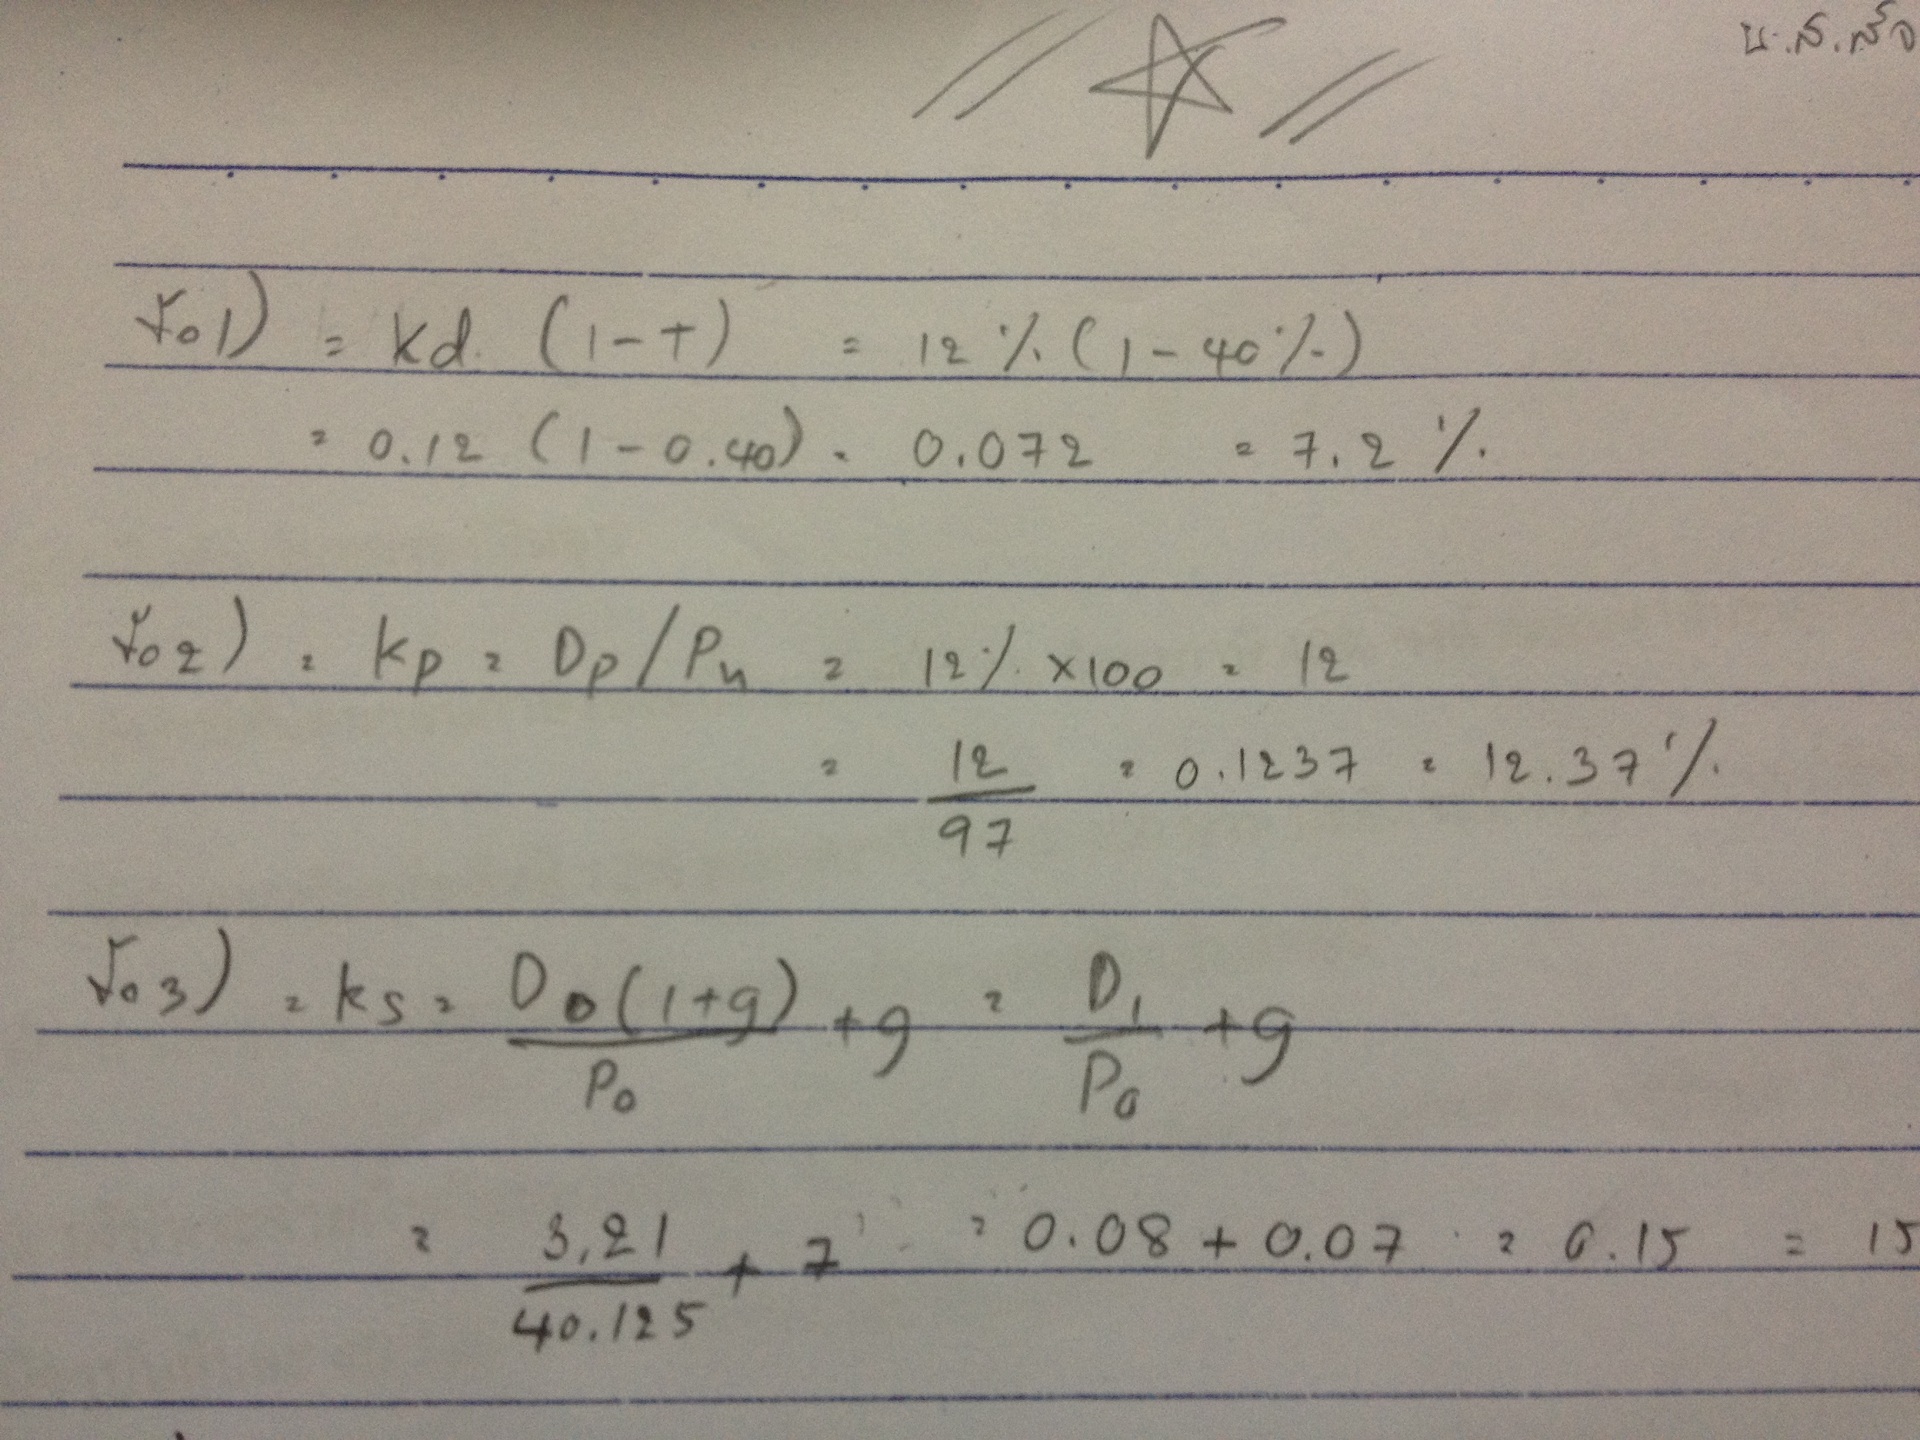 น.ส.
ข้อ1) = Kd (1-T) = 12% (1-40%)
= 0.12 (1-0.40) = 0.072 = 7.2%
ข้อ2) = Kp = Dp/Pn = 12% x100 = 12
= 12/97 = 0.1237 = 12.37%
ข้อ3) = Ks = D0(1+g)/P0 +g = D1/P0 +g
= 3.21/40.125 + 7 = 0.08 + 0.07 = 0.15 = 15